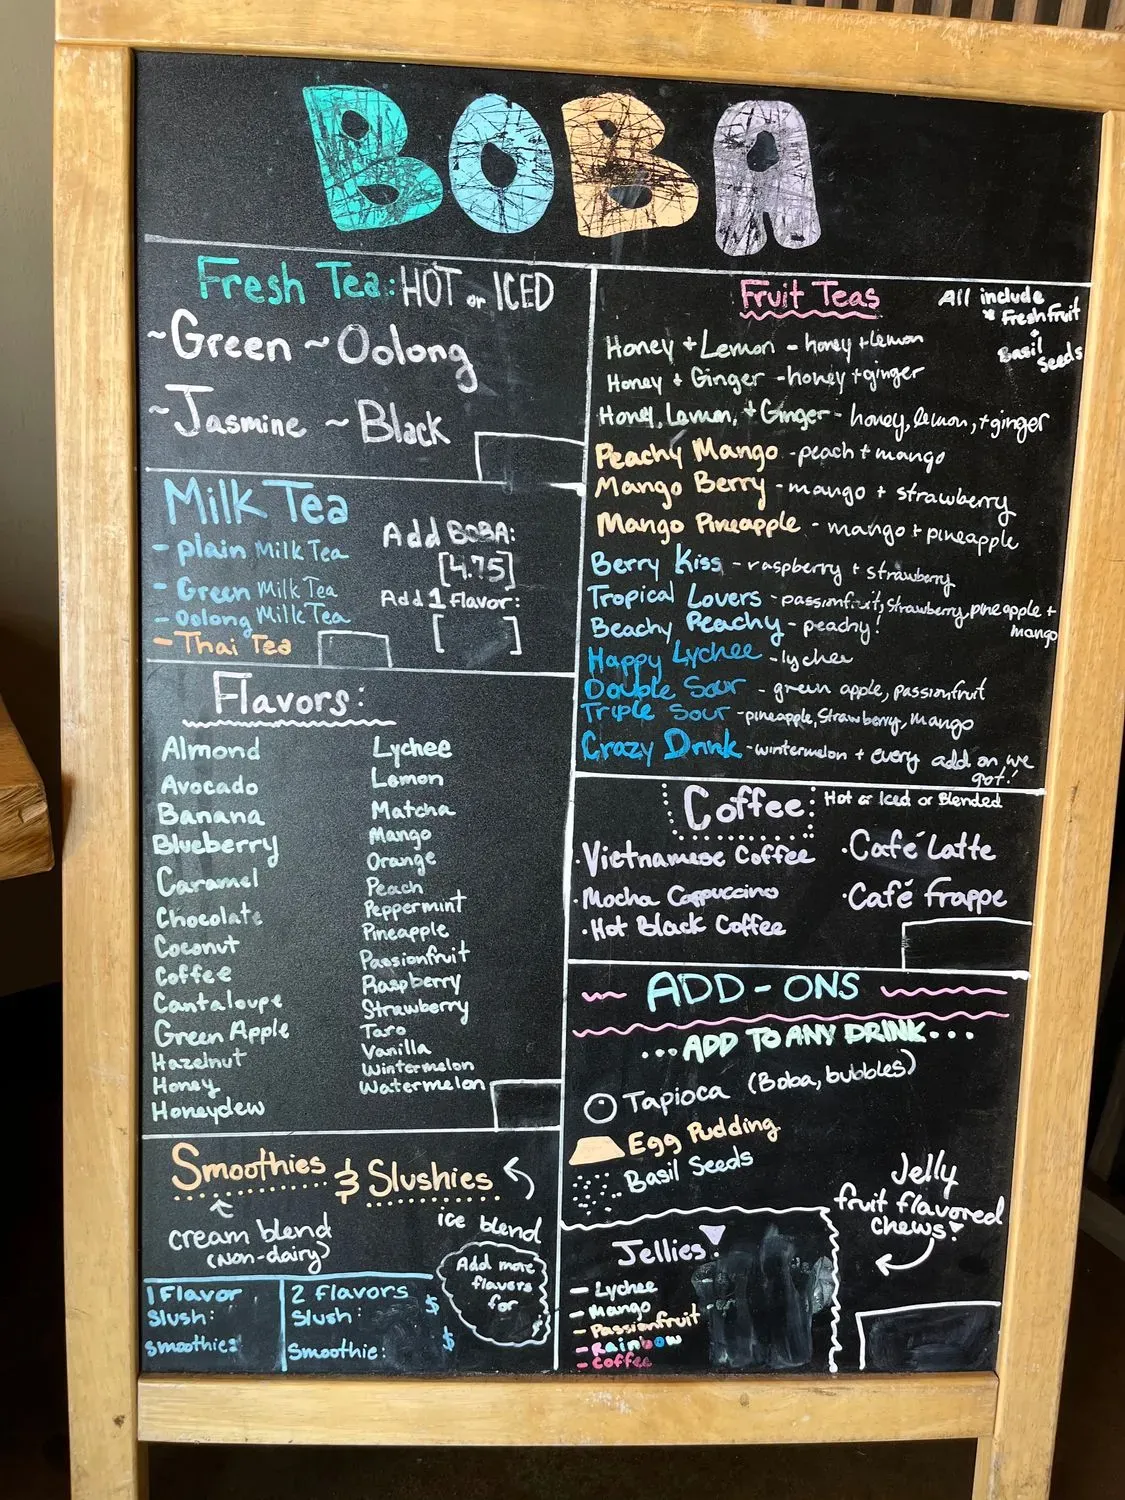 BOBA
Fresh Tea: HOT or ICED
~Green ~Oolong
~Jasmine ~Black
Milk Tea
- plain Milk Tea
- Green Milk Tea
- Oolong Milk Tea
- Thai Tea
Add BOBA:
[4.75]
Add 1 flavor:
[ ]
Flavors:
Almond
Avocado
Banana
Blueberry
Caramel
Chocolate
Coconut
Coffee
Cantaloupe
Green Apple
Hazelnut
Honey
Honeydew
Lychee
Lemon
Matcha
Mango
Orange
Peach
Peppermint
Pineapple
Passionfruit
Raspberry
Strawberry
Taro
Vanilla
Wintermelon
Watermelon
Smoothies & Slushies
cream blend
(Non-dairy)
ice blend
Add more
flavors
for
1 Flavor
Slush:
smoothies
2 flavors
Slush: $
Smoothie: $
Fruit Teas
All include
* Fresh fruit
+
Basil
Seeds
Honey + Lemon - honey + lemon
Honey + Ginger - honey + ginger
Honey, Lemon, + Ginger - honey, lemon, + ginger
Peachy Mango - peach + mango
Mango Berry - mango + strawberry
Mango Pineapple - mango + pineapple
Berry Kiss - raspberry + strawberry
Tropical Lovers - passionfruit, strawberry, pineapple +
mango
Beachy Peachy - peachy!
Happy Lychee - lychee
Double Sour - green apple, passionfruit
Triple Sour - pineapple, Strawberry, mango
Crazy Drink - wintermelon + every add on we
got!
Coffee: Hot or Iced or Blended
· Vietnamese Coffee
· Mocha Cappuccino
· Hot Black Coffee
· Café Latte
· Café Frappe
ADD-ONS
...ADD TO ANY DRINK...
Tapioca (Boba, bubbles)
Egg Pudding
Basil Seeds
Jelly
fruit flavored
chews!
Jellies!
- Lychee
- Mango
- Passionfruit
- Rainbow
- Coffee